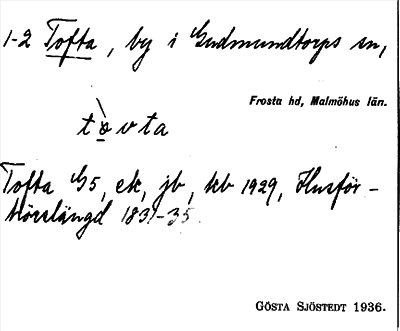 1-2 Tofta, by i Gudmundtorps sn,
Frosta hd, Malmöhus län.
tòvta
Tofta G5, ek, jb, kb 1929, Husför-
hörslängd 1831-35.
GÖSTA SJÖSTEDT 1936.